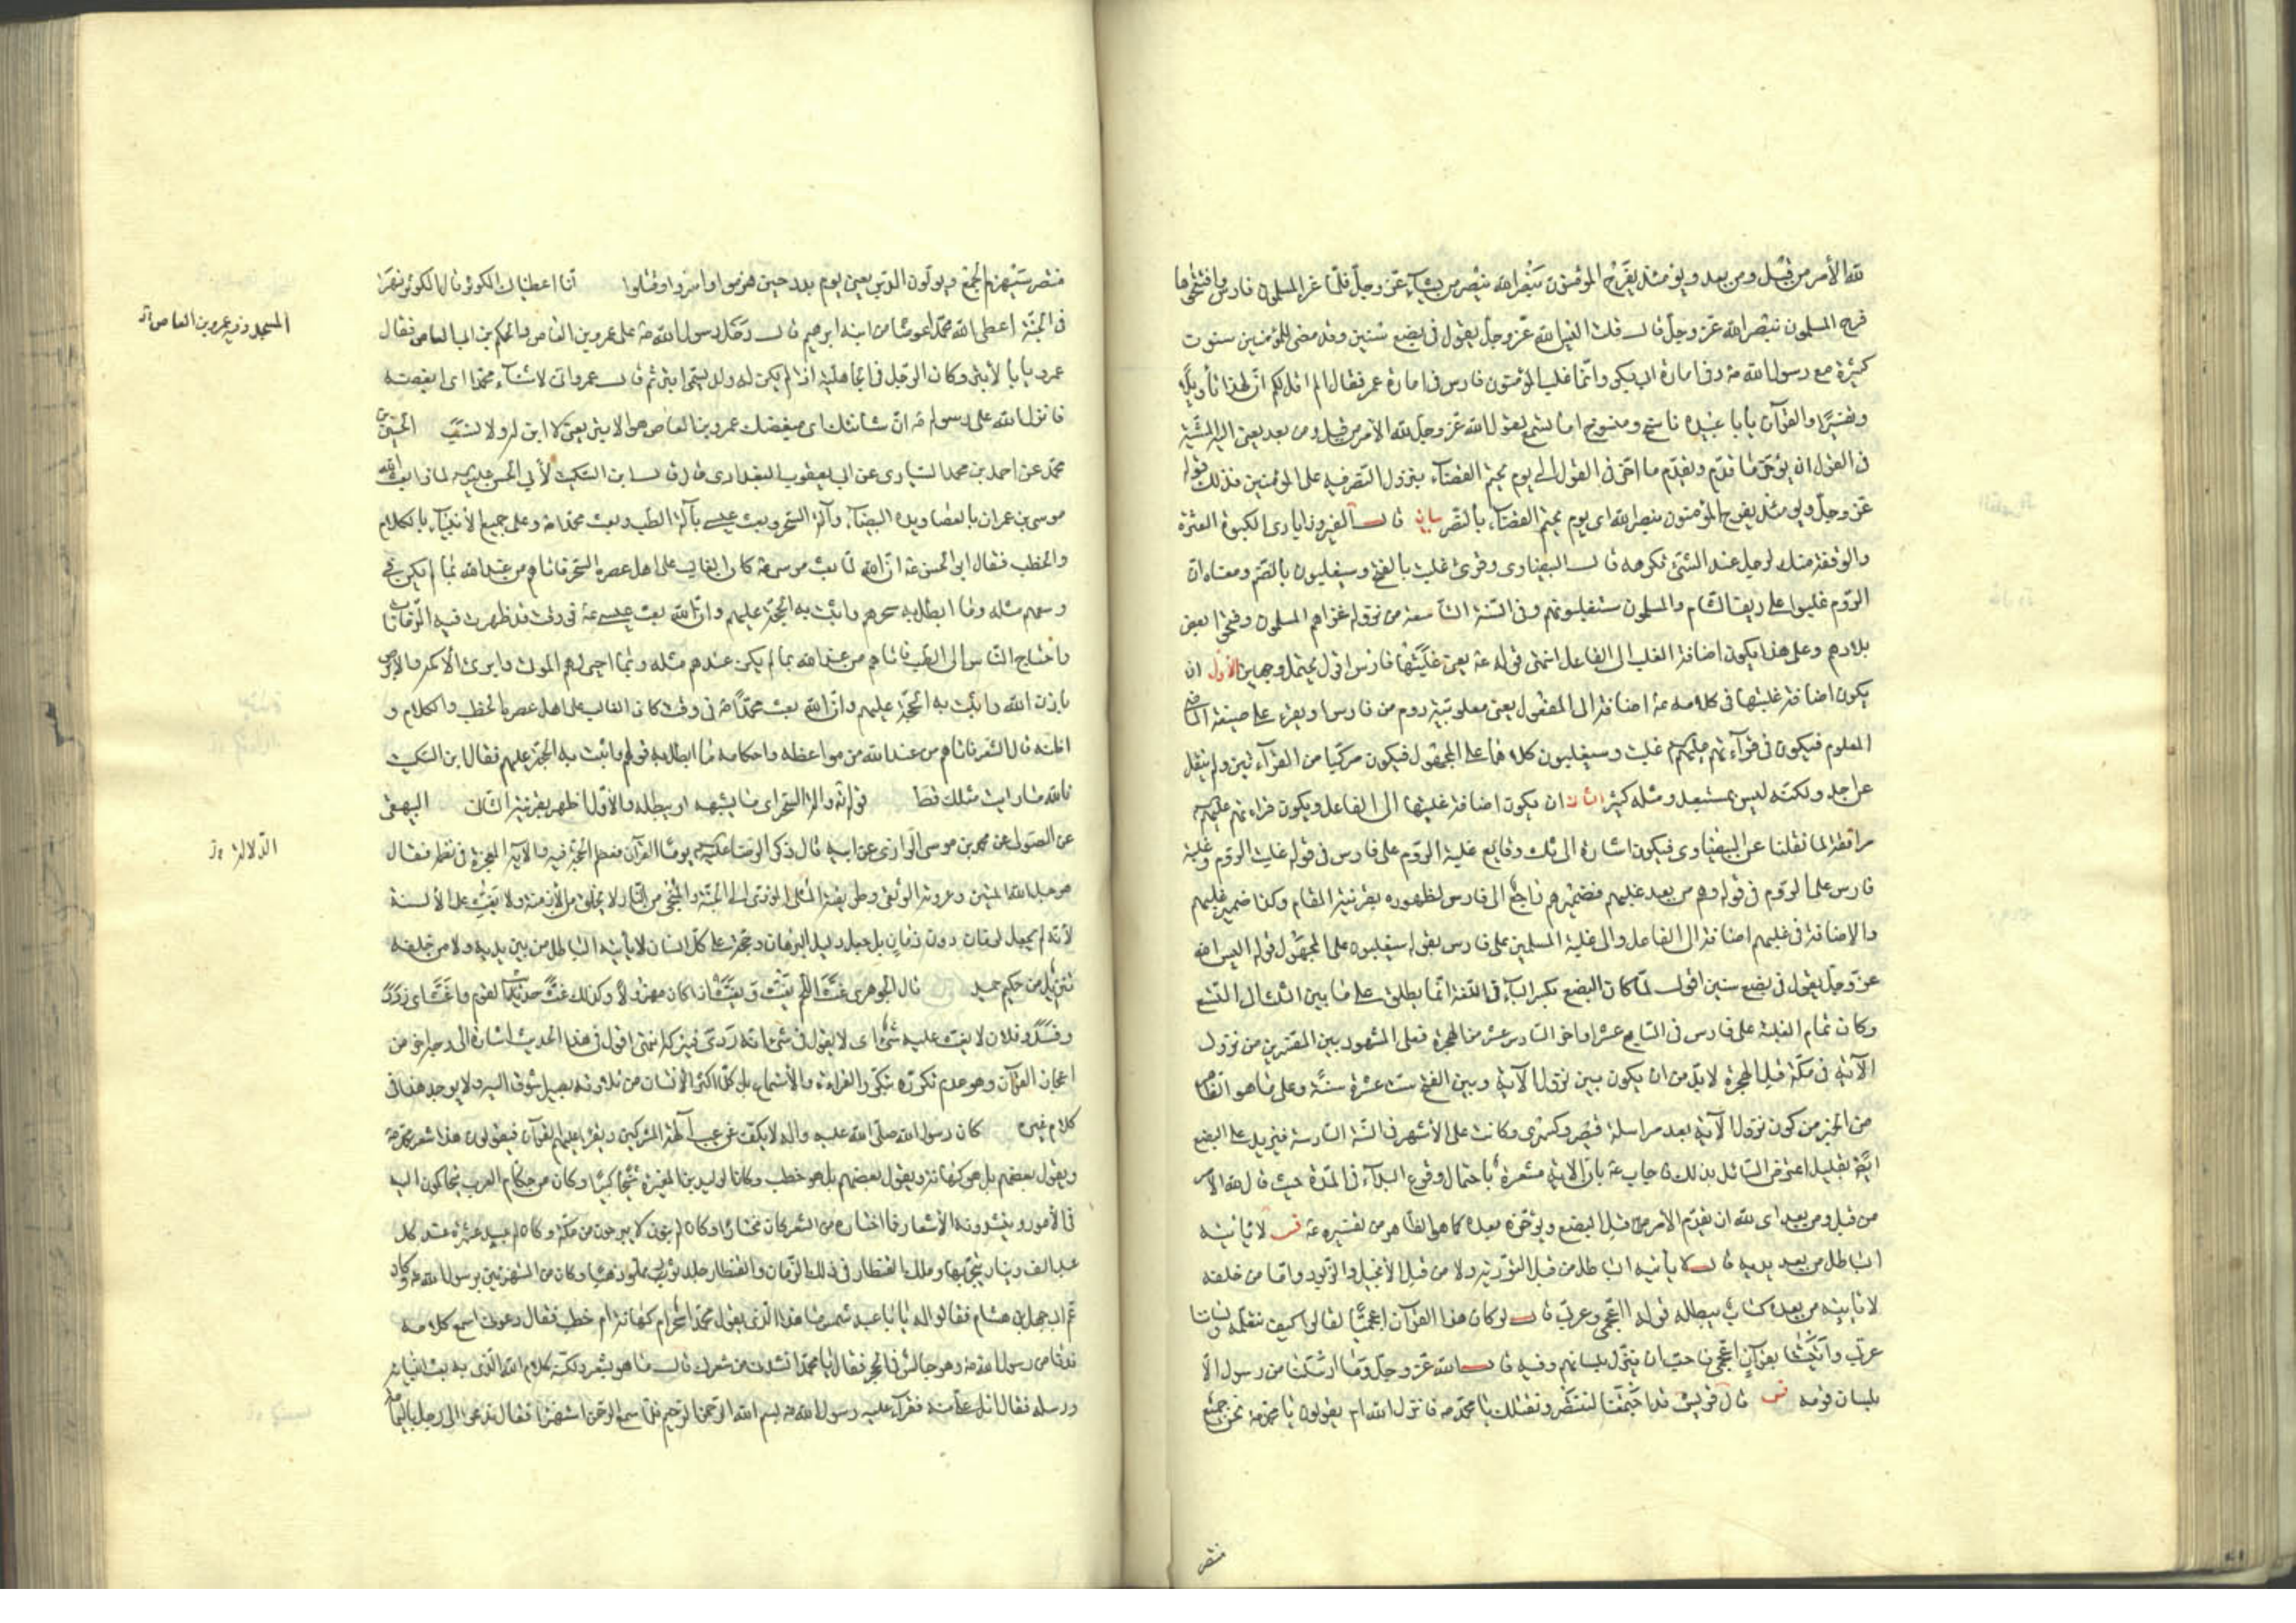 لله الأمر من قبل ومن بعد ويومئذ يفرح المؤمنون بنصر الله ينصر من يشاء عز وجل فلما غزا المسلمون فارس وافتتحوها
فرح المسلمون بنصر الله عز وجل قال قلت اليس الله عز وجل يقول في بضع سنين وقد مضى للمؤمنين سنون
كثيرة مع رسول الله ص وفي امارة ابي بكر وانما غلب المؤمنون فارس في امارة عمر فقال الم اقل لكم ان لهذا تأويلا
وتفسيرا والقرآن يابا عبيدة ناسخ ومنسوخ اما تسمع لقول الله عز وجل لله الأمر من قبل ومن بعد يعني اليه المشية
في القول ان يؤخر ما قدم ويقدم ما اخر في القول الى يوم يحتم القضاء بنزول النصر فيه على المؤمنين فذلك قوله
عز وجل ويومئذ يفرح المؤمنون بنصر الله اى يوم يحتم القضاء بالنصر بيان قال الفيروزابادى الكبوة العثرة
والوقفة منك لرجل عند الشئ تكرهه قال البيضاوى وقرئ غلبت بالفتح وسيغلبون بالضم ومعناه ان
الروم غلبوا على ريف الشام والمسلمون سيغلبونهم وفي السنة التاسعة من نزوله غزاهم المسلمون وفتحوا بعض
بلادهم وعلى هذا يكون اضافة الغلب الى الفاعل انتهى قوله ع يعنى غلبتها فارس اقول يحتمل وجهين الأول ان
يكون اضافة غلبتها في كلامه ع اضافة الى المفعول يعنى مغلوبية روم من فارس ويقرء على صيغة الماضى
المعلوم فيكون في قراءتهم عليهم غلبت وسيغلبون كلاهما على المجهول فيكون مركبا من القراءتين ولم ينقل
عن احد ولكنه ليس بمستبعد ومثله كثير الثانى ان يكون اضافة غلبتها الى الفاعل ويكون قراءتهم عليهم
مرافقة لما نقلنا عن البيضاوى فيكون اشارة الى وقايع غلبة الروم على فارس في قوله غلبت الروم وغلبة
فارس على الروم في قوله وهم من بعد غلبهم فضميرهم راجع الى فارس لظهوره بقرينة المقام وكذا ضمير غلبهم
والاضافة في غلبهم اضافة الى الفاعل والى غلبة المسلمين على فارس بقوله سيغلبون على المجهول قوله اليس الله
عز وجل يقول في بضع سنين اقول لما كان البضع بكسر الباء في اللغة انما يطلق على ما بين الثلث الى التسع
وكان تمام الغلبة على فارس في السابع عشر او اخر السادس عشر من الهجرة فعلى المشهور بين المفسرين من نزول
الآية في مكة قبل الهجرة لابد من ان يكون بين نزول الآية وبين الفتح ست عشرة سنة وعلى ما هو الظاهر
من الخبر من كون نزول الآية بعد مراسلة قيصر وكسرى وكانت على الأشهر في السنة السادسة فيزيد على البضع
ايضا بقليل اعترض السائل بذلك فاجاب ع بان الاية مشعرة باحتمال وقوع البداء في المدة حيث قال لله الامر
من قبل ومن بعد اى لله ان يقدم الامر من قبل البضع ويؤخره بعده كما هو الظاهر من تفسيره ع فس لا يأتيه
الباطل من بين يديه قال لا يأتيه الباطل من قبل التورية ولا من قبل الأنجيل والزبور واما من خلفه
لا يأتيه من بعده كتاب يبطله قوله ااعجمى وعربى قال لو كان هذا القرآن اعجميا لقالوا كيف نتعلمه ولساننا
عربى واتيتنا بقرآن اعجمى فاحب ان ينزل بلسانهم وفيه قال الله عز وجل وما ارسلنا من رسول الا
بلسان قومه فس قال قريش قد اجتمعنا لننتصر ونقتلك يا محمد فانزل الله ام يقولون يا محمد نحن جميع
منتصر
منتصر سيهزم الجمع ويولون الدبر يعنى يوم بدر حين هزموا واسروا وقتلوا انا اعطيناك الكوثر قال الكوثر نهر
في الجنة اعطى الله محمدا عوضا من ابنه ابرهيم قال دخل رسول الله ص على عمرو بن العاص والحكم بن ابى العاص فقال
المسجد وفيه عمرو بن العاص
عمرو يابا الأبتر وكان الرجل في الجاهلية اذا لم يكن له ولد يسمى ابتر ثم قال عمرو انى لاشناء محمدا اى ابغضه
فانزل الله على رسوله ص ان شانئك اى مبغضك عمرو بن العاص هو الابتر يعنى لا ابن له ولا نسب الحسين بن
محمد عن احمد بن محمد السيارى عن ابى يعقوب البغدادى قال قال ابن السكيت لأبى الحسن لماذا بعث الله
موسى بن عمران بالعصا ويده البيضاء وآلة السحر وبعث عيسى بآلة الطب وبعث محمدا ص وعلى جميع الأنبياء بالكلام
والخطب فقال ابو الحسن ع ان الله لما بعث موسى ع كان الغالب على اهل عصره السحر فاتاهم من عند الله بما لم يكن في
وسعهم مثله وما ابطل به سحرهم واثبت به الحجة عليهم وان الله بعث عيسى ع في وقت قد ظهرت فيه الزمانات
واحتاج الناس الى الطب فاتاهم من عند الله بما لم يكن عندهم مثله وبما احيى لهم الموتى وابرئ الأكمه والابرص
باذن الله واثبت به الحجة عليهم وان الله بعث محمدا ص في وقت كان الغالب على اهل عصره الخطب والكلام و
اظنه قال الشعر فاتاهم من عند الله من مواعظه واحكامه ما ابطل به قولهم واثبت به الحجة عليهم فقال ابن السكيت
تالله ما رايت مثلك قط قوله وآلة السحر اى ما يشبهه او يبطله والأول اظهر بقرينة الثانى البيهقى
عن الصولى عن محمد بن موسى الرازى عن ابيه قال ذكر الرضا يوما القرآن فعظم الحجة فيه والآية المعجزة في نظمه فقال
الدلالة
هو حبل الله المتين وعروته الوثقى وطريقته المثلى المؤدى الى الجنة والمنجى من النار لا يخلق من الأزمنة ولا يغث على الألسنة
لأنه لم يجعل لزمان دون زمان بل جعل دليل البرهان وحجة على كل انسان لا يأتيه الباطل من بين يديه ولا من خلفه
تنزيل من حكيم حميد قال الجوهرى غث اللحم يغث ويغث اذا كان مهزولا وكذلك غث حديث القوم واغث اى ردؤ
وفسد وفلان لا يغث عليه شئ اى لا يقول في شئ انه ردى فيتركه انتهى اقول في هذا الحديث اشارة الى وجه اخر من
اعجاز القرآن وهو عدم تكرره بتكرر القراءة والأستماع بل كلما اكثر الانسان من تلاوته يصير اشوق اليه ولا يوجد هذا في
كلام غيره كان رسول الله صلى الله عليه واله لا يكف عن عيب آلهة المشركين ويقرأ عليهم القرآن فيقولون هذا شعر محمد ص
ويقول بعضهم بل هو كهانة ويقول بعضهم بل هو خطب وكان الوليد بن المغيرة شيخا كبيرا وكان من حكام العرب يتحاكمون اليه
في الأمور وينشدونه الأشعار فما اختاره من الشعر كان مختارا وكان له بنون لا يبرحون من مكة وكان له عبيد عشرة عند كل
عبد الف دينار يتجر بها وملك القنطار في ذلك الزمان والقنطار جلد ثور مملو ذهبا وكان من المستهزئين برسول الله ص وكان
عم ابى جهل بن هشام فقالوا له يا ابا عبد شمس ما هذا الذى يقول محمد اسحر ام كهانة ام خطب فقال دعونى اسمع كلامه
فدنا من رسول الله ص وهو جالس في الحجر فقال يا محمد انشدنى من شعرك قال ما هو بشعر ولكنه كلام الله الذى به بعث انبيائه
ورسله فقال اتل على منه فقرأ عليه رسول الله ص بسم الله الرحمن الرحيم فلما سمع الرحمن استهزء فقال تدعو الى رجل باليمامة